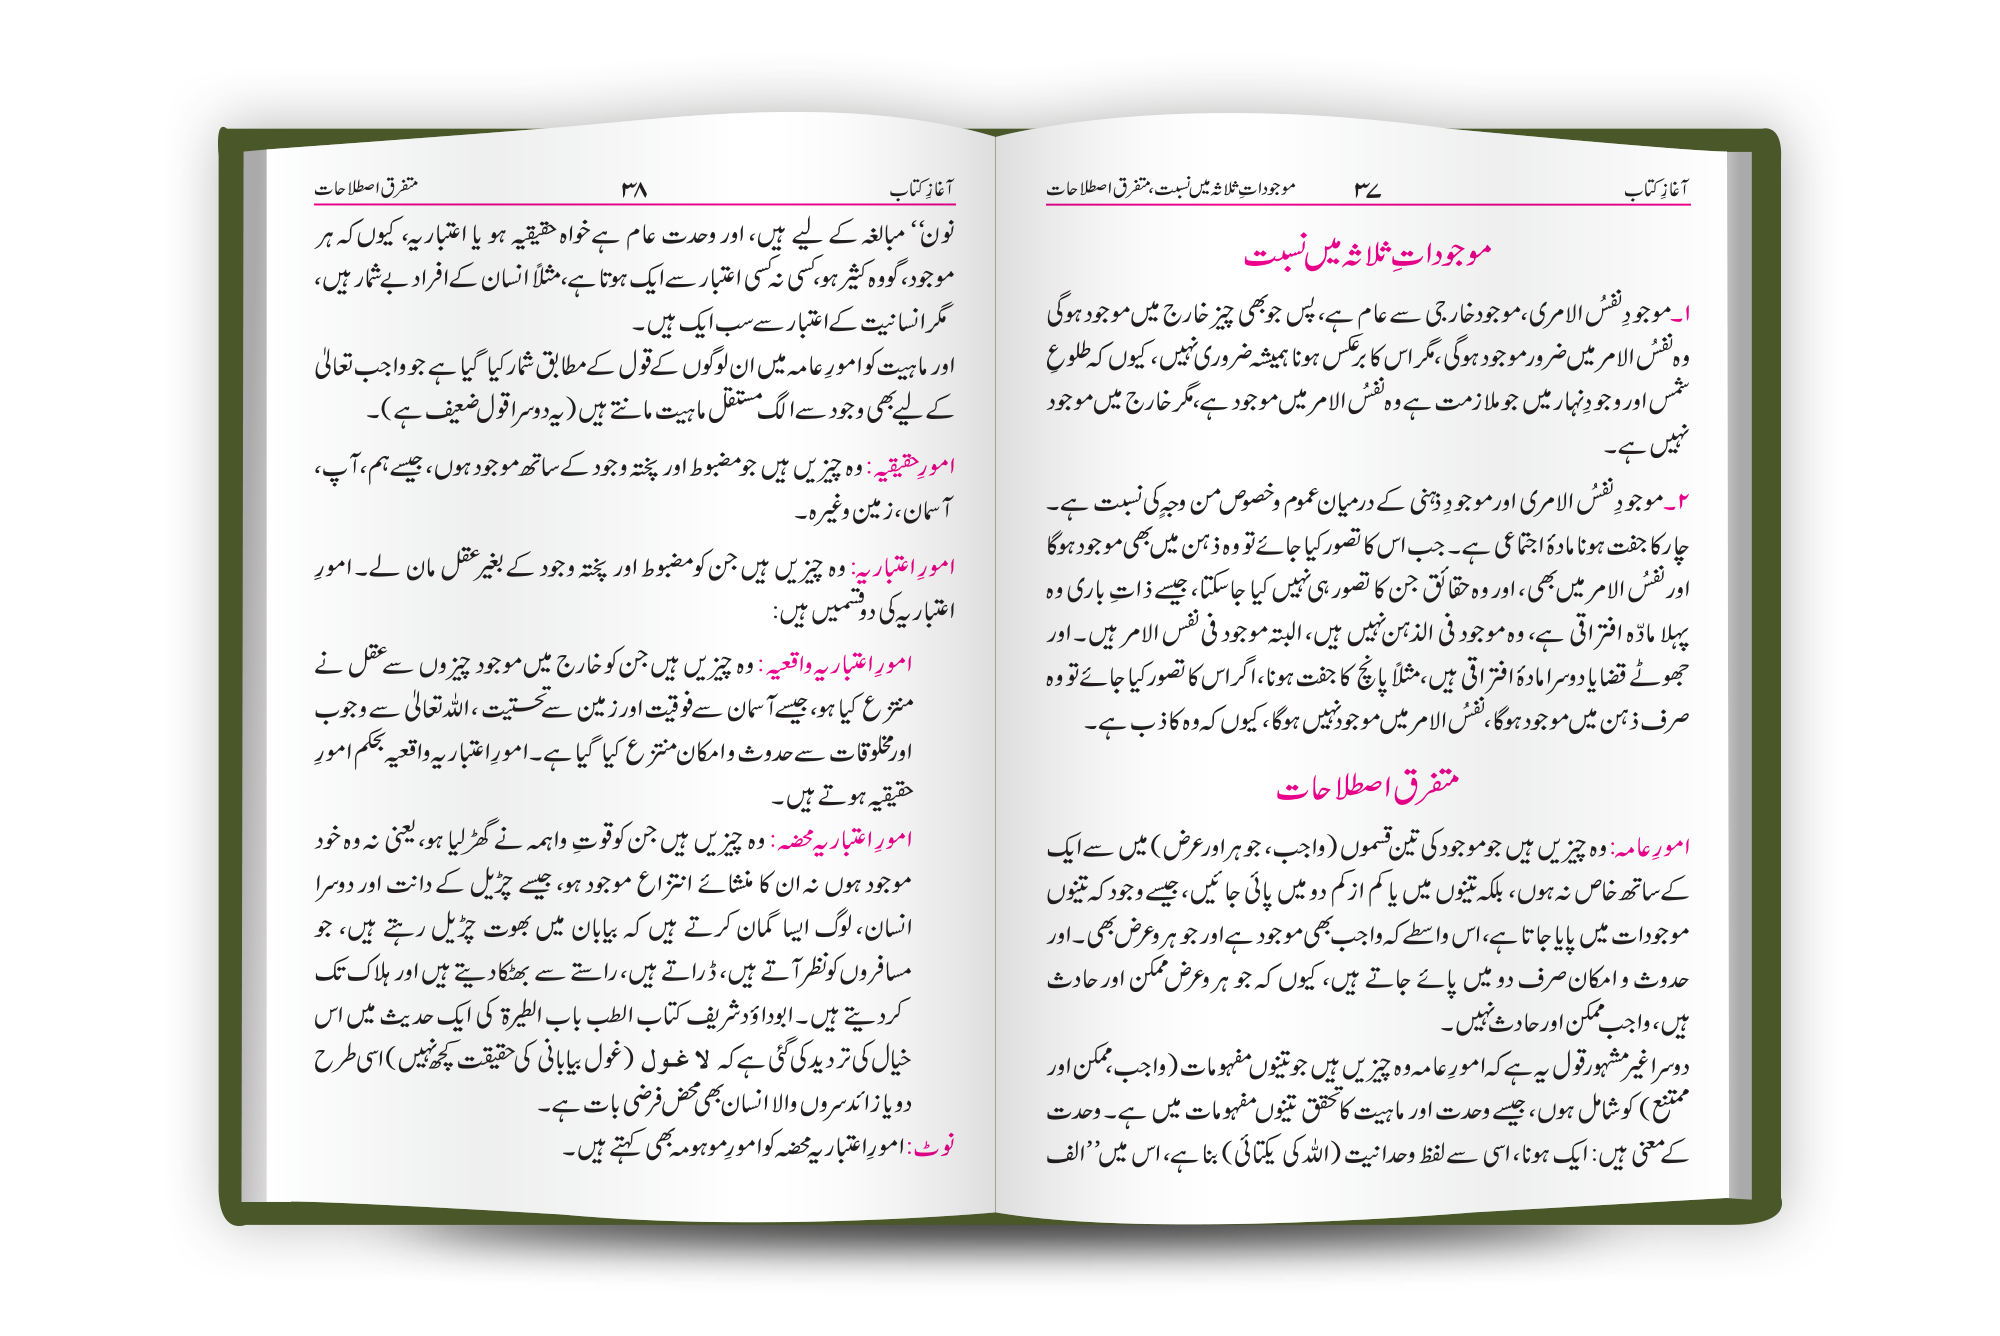 آغازِ کتاب ۳۷ موجوداتِ ثلاثہ میں نسبت، متفرق اصطلاحات
موجوداتِ ثلاثہ میں نسبت
۱۔ موجودِ نفسُ الامری، موجود خارجی سے عام ہے، پس جو بھی چیز خارج میں موجود ہوگی
وہ نفسُ الامر میں ضرور موجود ہوگی، مگر اس کا برعکس ہونا ہمیشہ ضروری نہیں، کیوں کہ طلوعِ
شمس اور وجودِ نہار میں جو ملازمت ہے وہ نفسُ الامر میں موجود ہے، مگر خارج میں موجود
نہیں ہے۔
۲۔ موجودِ نفسُ الامری اور موجودِ ذہنی کے درمیان عموم و خصوص من وجہٍ کی نسبت ہے۔
چار کا جفت ہونا مادۂ اجتماعی ہے۔ جب اس کا تصور کیا جائے تو وہ ذہن میں بھی موجود ہوگا
اور نفسُ الامر میں بھی، اور وہ حقائق جن کا تصور ہی نہیں کیا جاسکتا، جیسے ذاتِ باری وہ
پہلا مادّہ افتراقی ہے، وہ موجود فی الذہن نہیں ہیں، البتہ موجود فی نفس الامر ہیں۔ اور
جھوٹے قضایا دوسرا مادۂ افتراقی ہیں، مثلاً پانچ کا جفت ہونا، اگر اس کا تصور کیا جائے تو وہ
صرف ذہن میں موجود ہوگا، نفسُ الامر میں موجود نہیں ہوگا، کیوں کہ وہ کاذب ہے۔
متفرق اصطلاحات
امورِ عامہ: وہ چیزیں ہیں جو موجود کی تین قسموں (واجب، جوہر اور عرض) میں سے ایک
کے ساتھ خاص نہ ہوں، بلکہ تینوں میں یا کم از کم دو میں پائی جائیں، جیسے وجود کہ تینوں
موجودات میں پایا جاتا ہے، اس واسطے کہ واجب بھی موجود ہے اور جوہر و عرض بھی۔ اور
حدوث و امکان صرف دو میں پائے جاتے ہیں، کیوں کہ جوہر و عرض ممکن اور حادث
ہیں، واجب ممکن اور حادث نہیں۔
دوسرا غیر مشہور قول یہ ہے کہ امورِ عامہ وہ چیزیں ہیں جو تینوں مفہومات (واجب، ممکن اور
ممتنع) کو شامل ہوں، جیسے وحدت اور ماہیت کا تحقق تینوں مفہومات میں ہے۔ وحدت
کے معنی ہیں: ایک ہونا، اسی سے لفظ وحدانیت (اللہ کی یکتائی) بنا ہے، اس میں ’’الف
آغازِ کتاب ۳۸ متفرق اصطلاحات
نون‘‘ مبالغہ کے لیے ہیں، اور وحدت عام ہے خواہ حقیقیہ ہو یا اعتباریہ، کیوں کہ ہر
موجود، گو وہ کثیر ہو، کسی نہ کسی اعتبار سے ایک ہوتا ہے، مثلاً انسان کے افراد بے شمار ہیں،
مگر انسانیت کے اعتبار سے سب ایک ہیں۔
اور ماہیت کو امورِ عامہ میں ان لوگوں کے قول کے مطابق شمار کیا گیا ہے جو واجب تعالیٰ
کے لیے بھی وجود سے الگ مستقل ماہیت مانتے ہیں (یہ دوسرا قول ضعیف ہے)۔
امورِ حقیقیہ: وہ چیزیں ہیں جو مضبوط اور پختہ وجود کے ساتھ موجود ہوں، جیسے ہم، آپ،
آسمان، زمین وغیرہ۔
امورِ اعتباریہ: وہ چیزیں ہیں جن کو مضبوط اور پختہ وجود کے بغیر عقل مان لے۔ امورِ
اعتباریہ کی دو قسمیں ہیں:
امورِ اعتباریہ واقعیہ: وہ چیزیں ہیں جن کو خارج میں موجود چیزوں سے عقل نے
منتزع کیا ہو، جیسے آسمان سے فوقیت اور زمین سے تحتیت، اللہ تعالیٰ سے وجوب
اور مخلوقات سے حدوث و امکان منتزع کیا گیا ہے۔ امورِ اعتباریہ واقعیہ بحکم امورِ
حقیقیہ ہوتے ہیں۔
امورِ اعتباریہ محضہ: وہ چیزیں ہیں جن کو قوتِ واہمہ نے گھڑ لیا ہو، یعنی نہ وہ خود
موجود ہوں نہ ان کا منشائے انتزاع موجود ہو، جیسے چڑیل کے دانت اور دوسرا
انسان، لوگ ایسا گمان کرتے ہیں کہ بیابان میں بھوت چڑیل رہتے ہیں، جو
مسافروں کو نظر آتے ہیں، ڈراتے ہیں، راستے سے بھٹکا دیتے ہیں اور ہلاک تک
کردیتے ہیں۔ ابوداؤد شریف کتاب الطب باب الطیرۃ کی ایک حدیث میں اس
خیال کی تردید کی گئی ہے کہ لا غول (غول بیابانی کی حقیقت کچھ نہیں) اسی طرح
دو یا زائد سروں والا انسان بھی محض فرضی بات ہے۔
نوٹ: امورِ اعتباریہ محضہ کو امورِ موہومہ بھی کہتے ہیں۔